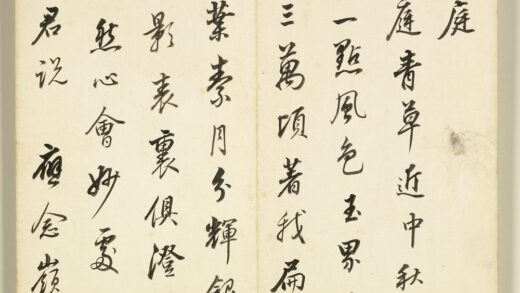 庭
庭青草近中秋
一點風色玉界
三萬頃著我扁
葉素月分輝銀
影表裏俱澄
然心會妙處
君説 應念嶺